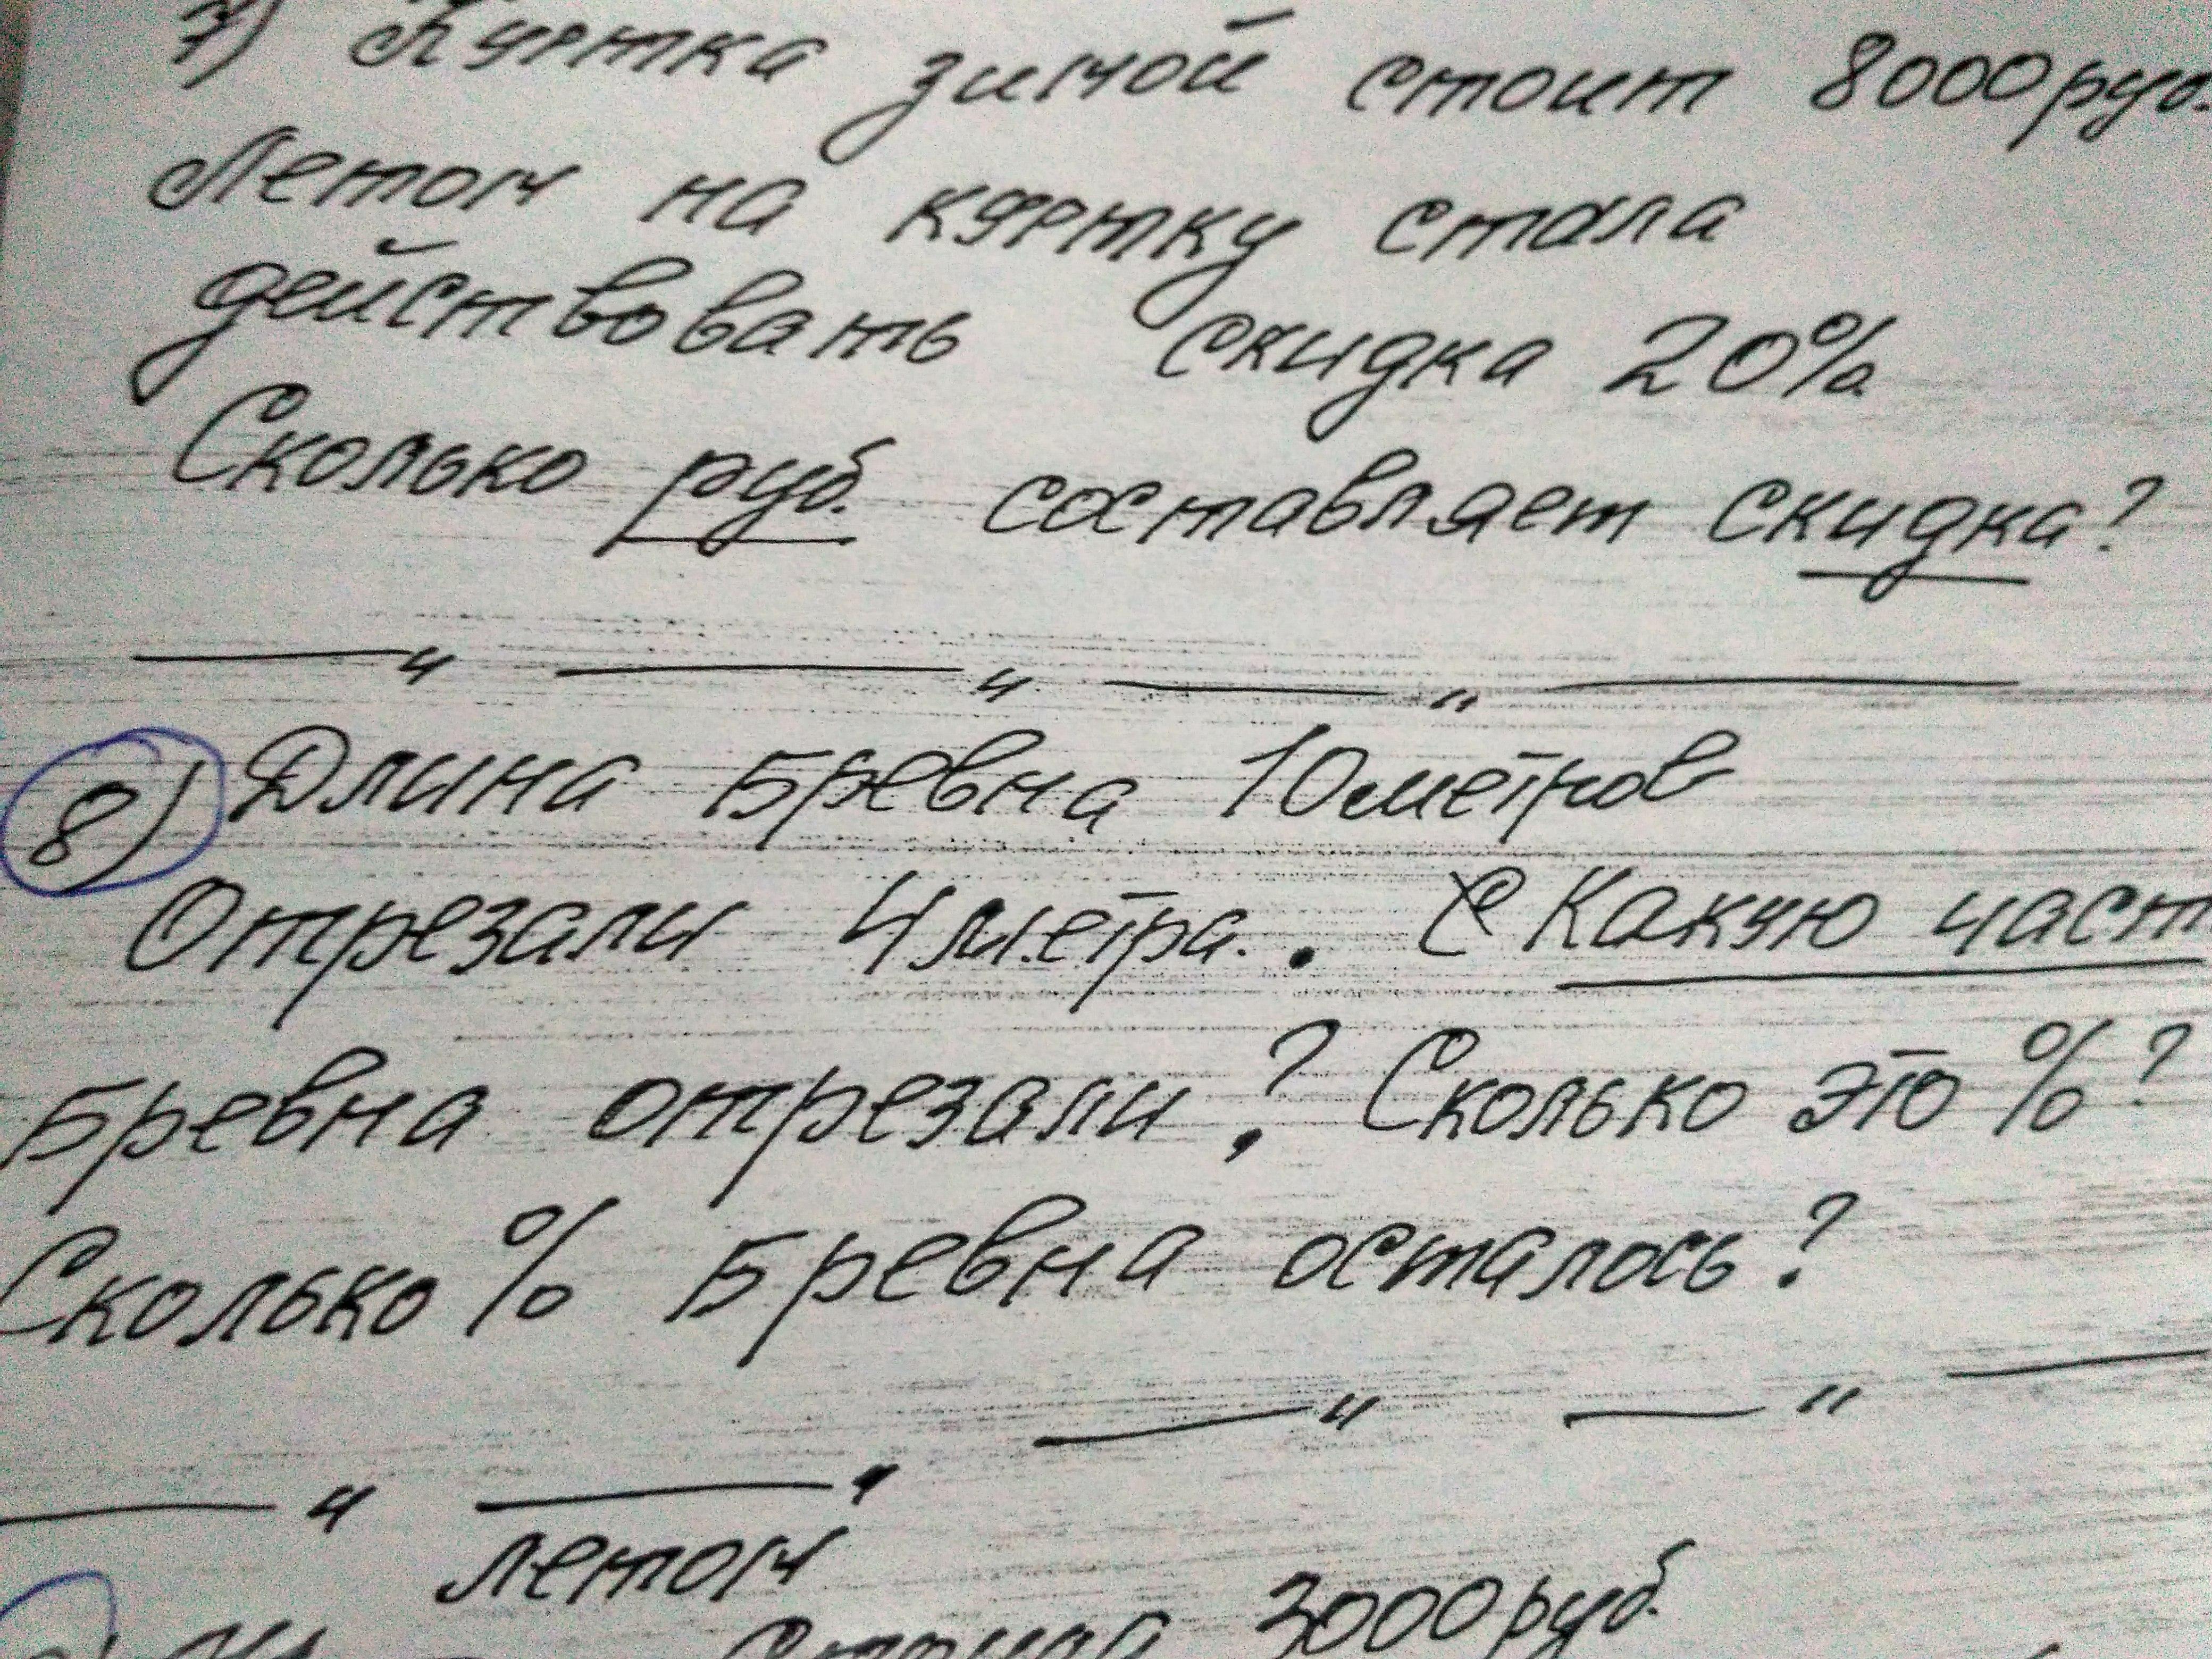 7) Куртка зимой стоит 8000 руб.
Летом на куртку стала
действовать скидка 20%
Сколько руб. составляет скидка?
8) Длина бревна 10 метров
Отрезали 4 метра. Какую част
бревна отрезали? Сколько это %?
Сколько % бревна осталось?
летом
3000 руб.